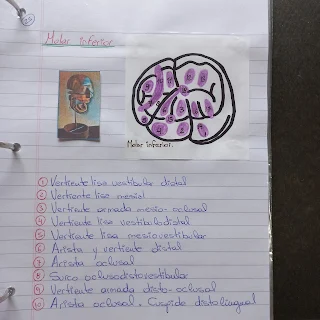 Molar inferior
Molar inferior.
1 Vertiente lisa vestibular distal
2 Vertiente lisa mesial
3 Vertiente armada mesio-oclusal
4 Vertiente lisa vestibulodistal
5 Vertiente lisa mesiovestibular
6 Arista y vertiente distal
7 Arista oclusal
8 Surco oclusodistovestibular
9 Vertiente armada disto-oclusal
10 Arista oclusal. Cuspide distolingual